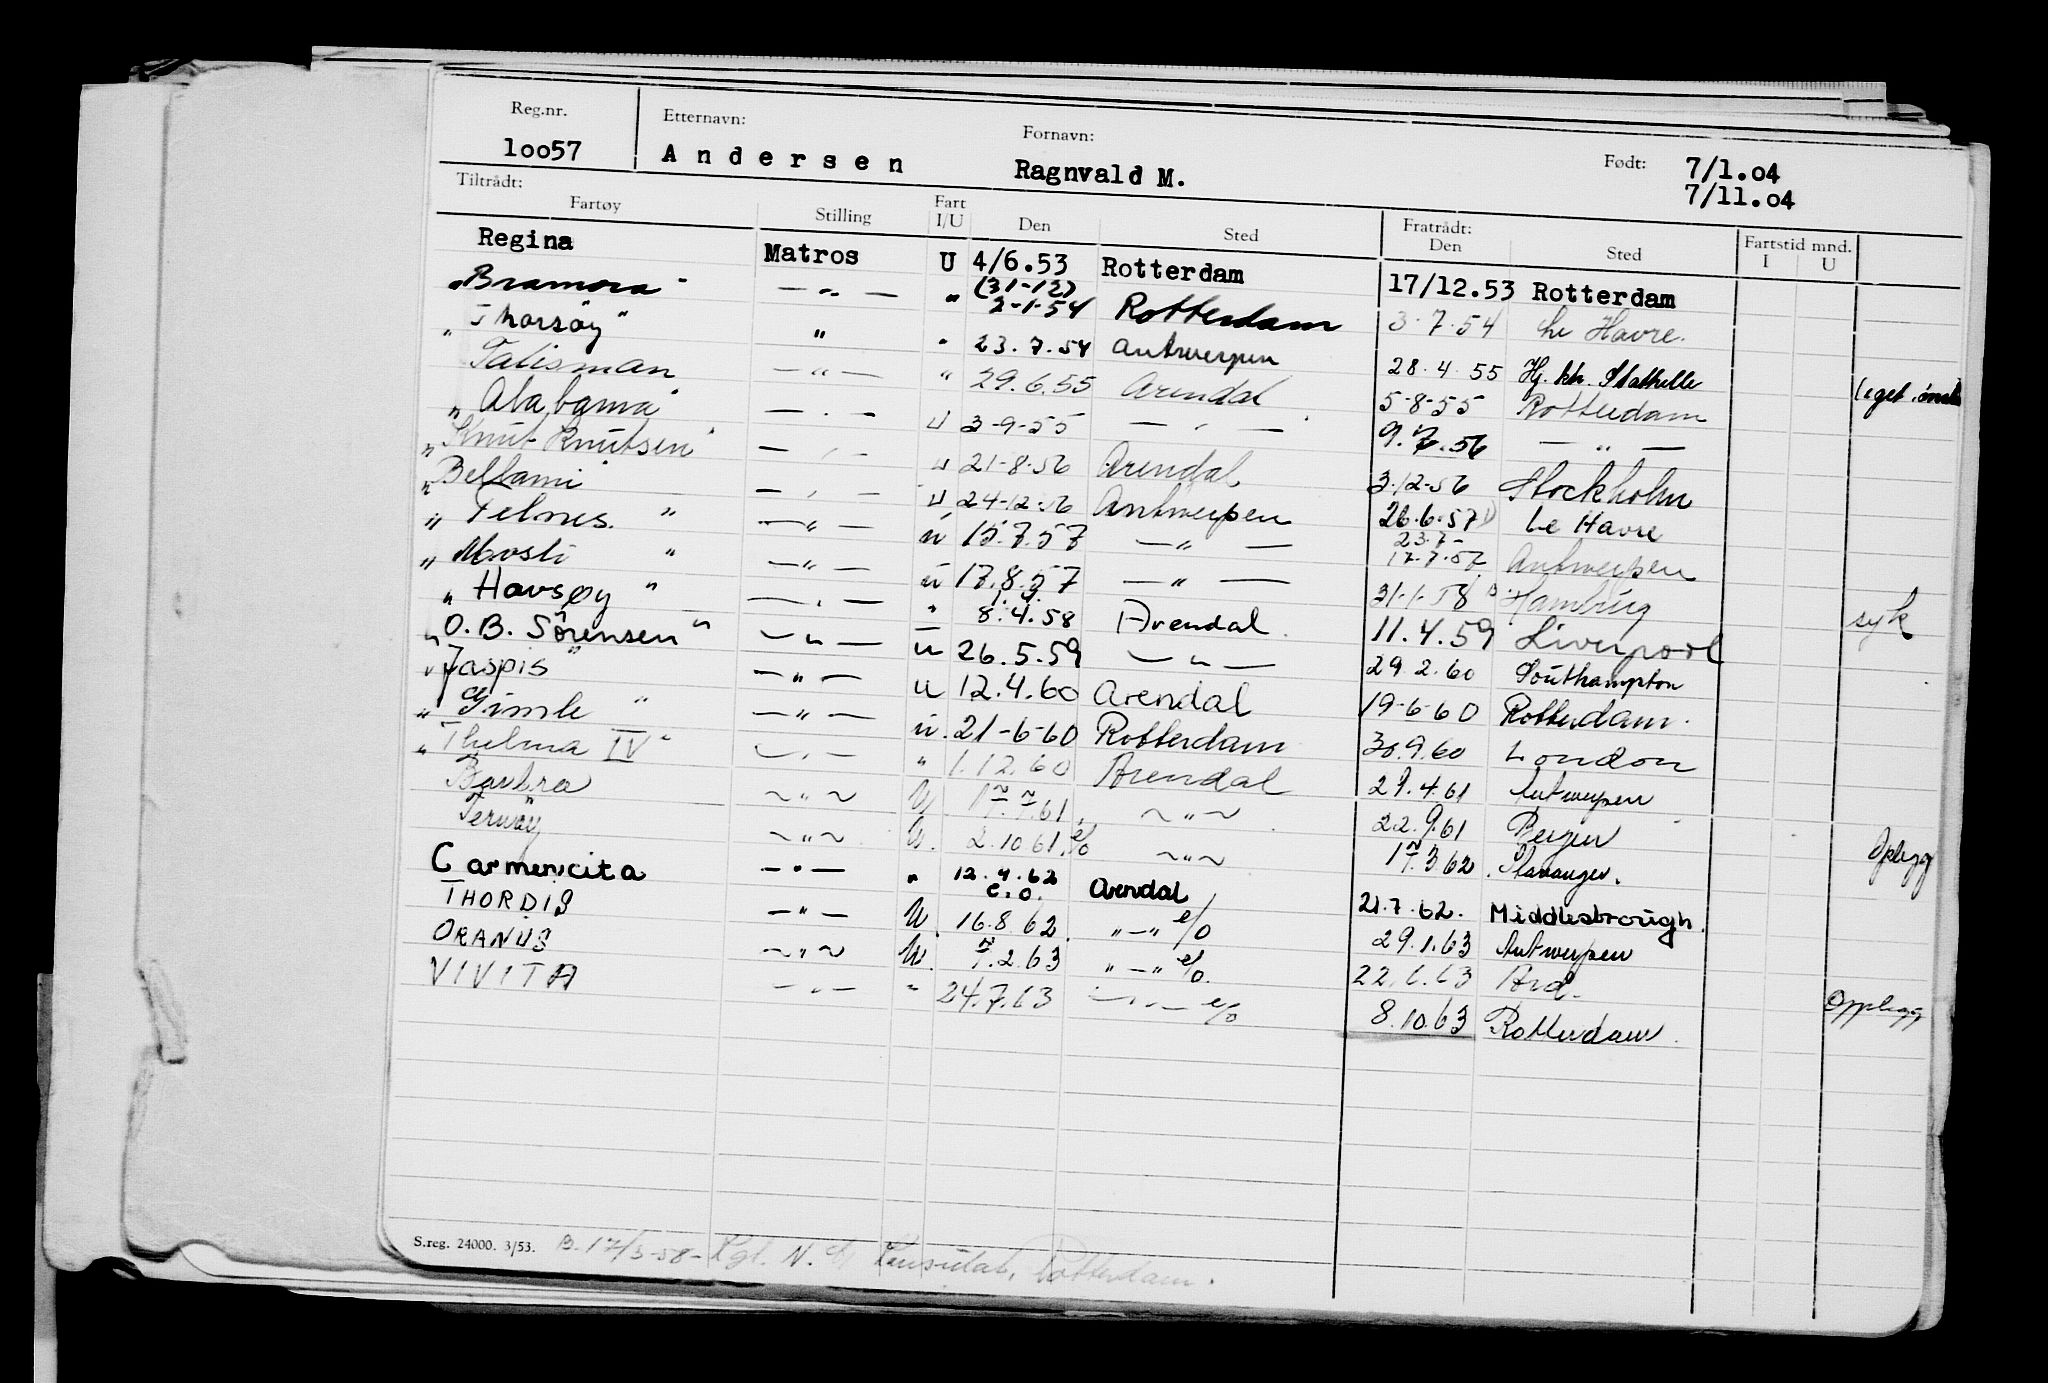 Reg.nr. Etternavn: Fornavn: Født:
10057 Andersen Ragnvald M. 7/1.04
7/11.04
Tiltrådt: Fratrådt:
Fartøy Stilling Fart I/U Den Sted Den Sted Fartstid mnd. I U
Regina Matros U 4/6.53 Rotterdam 17/12.53 Rotterdam
"Bramora" — " — " (31-12) 2-1-54 Rotterdam 3.7.54 Le Havre.
"Thorsøy" " " 23.7.54 Antwerpen 28.4.55 Hj. kh. Stathelle
Talisman — " — " 29.6.55 Arendal 5-8-55 Rotterdam
"Alabama" — " — U 3-9-55 — " — 9.7.56 — " —
"Knut Knutsen" — " — U 21-8-56 Arendal 3-12-56 Stockholm
"Bellami" — " — U 24-12-56 Antwerpen 26.6.57 Le Havre
"Telnes" — " — U 15.7.57 — " — 23.7- 17.7.57 Antwerpen
"Mosli" — " — U 17.8.57 — " — 31-1-58 Hamburg syk
"Havsøy" — " — " 8.4.58 Arendal 11.4.59 Liverpool
"O.B. Sørensen" — " — U 26.5.59 — " — 29.2.60 Southampton
"Jaspis" — " — U 12.4.60 Arendal 19-6-60 Rotterdam.
"Gimle" — " — U. 21-6-60 Rotterdam 30.9.60 London
"Thelma IV" — " — " 1.12.60 Arendal 29.4.61 Antwerpen
Barbra ~ " ~ U 1.7.61 ~ " ~ 22.9.61 Bergen Oplegg
Ternøy ~ " ~ U. 2.10.61 e/o ~ " ~ 1.3.62 Stavanger.
Carmencita — " — " 12.4.62 e.o. Arendal 21.7.62. Middlesbrough.
THORDIS — " — U. 16.8.62. " — " e/o 29.1.63 Antwerpen
ORANUS ~ " ~ U. 7.2.63 " — " e/o. 22.6.63 Ard. Opplegg
VIVITA — " — " 24.7.63 — " — e/o 8.10.63 Rotterdam.
S.reg. 24000. 3/53. B. 17/3-58 - Kgl. N. Konsulat, Rotterdam.